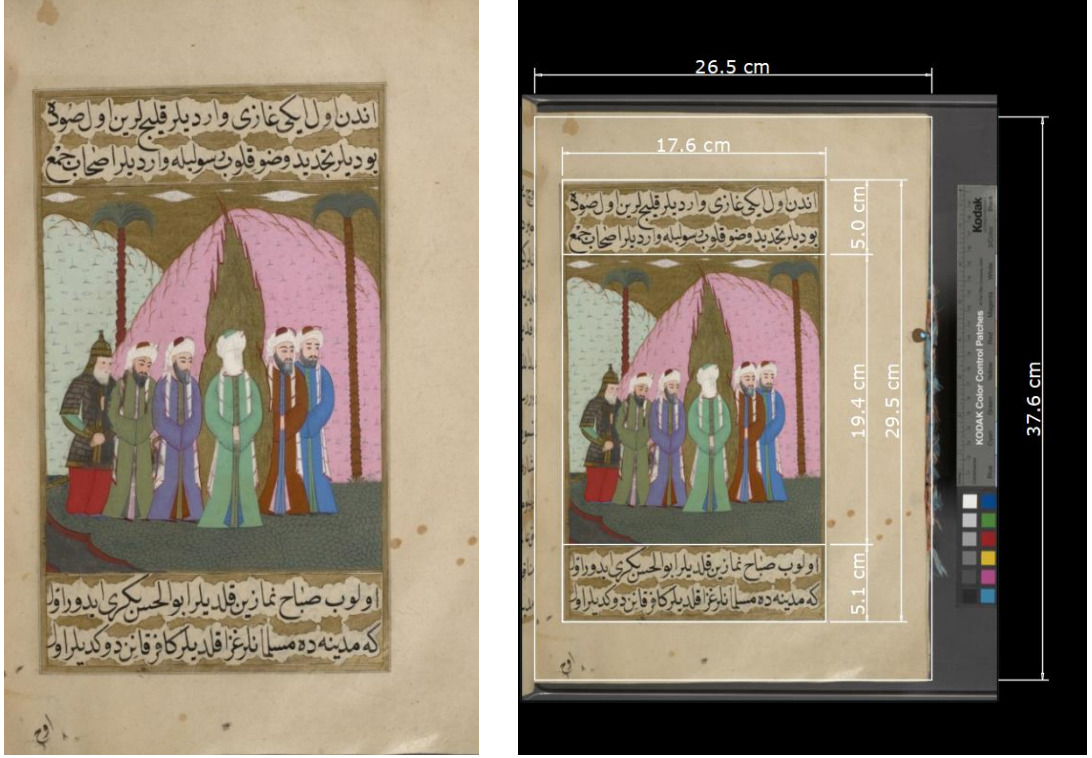 اندن اول ایکی غازی واردیلر قلیجلرین اول صوده
یودیلر تجدید وضو قلوب رسولیله واردیلر اصحاب جمع
اولوب صباح نمازین قلدیلر ابو الحسن بکری ایدور اول
که مدینه ده مسلمانلر غزا قلدیلر کافر قانن دوکدیلر اول
اوح
26.5 cm
17.6 cm
اندن اول ایکی غازی واردیلر قلیجلرین اول صوده
یودیلر تجدید وضو قلوب رسولیله واردیلر اصحاب جمع
5.0 cm
19.4 cm
29.5 cm
37.6 cm
5.1 cm
اولوب صباح نمازین قلدیلر ابو الحسن بکری ایدور اول
که مدینه ده مسلمانلر غزا قلدیلر کافر قانن دوکدیلر اول
اوح
Kodak
KODAK Color Control Patches